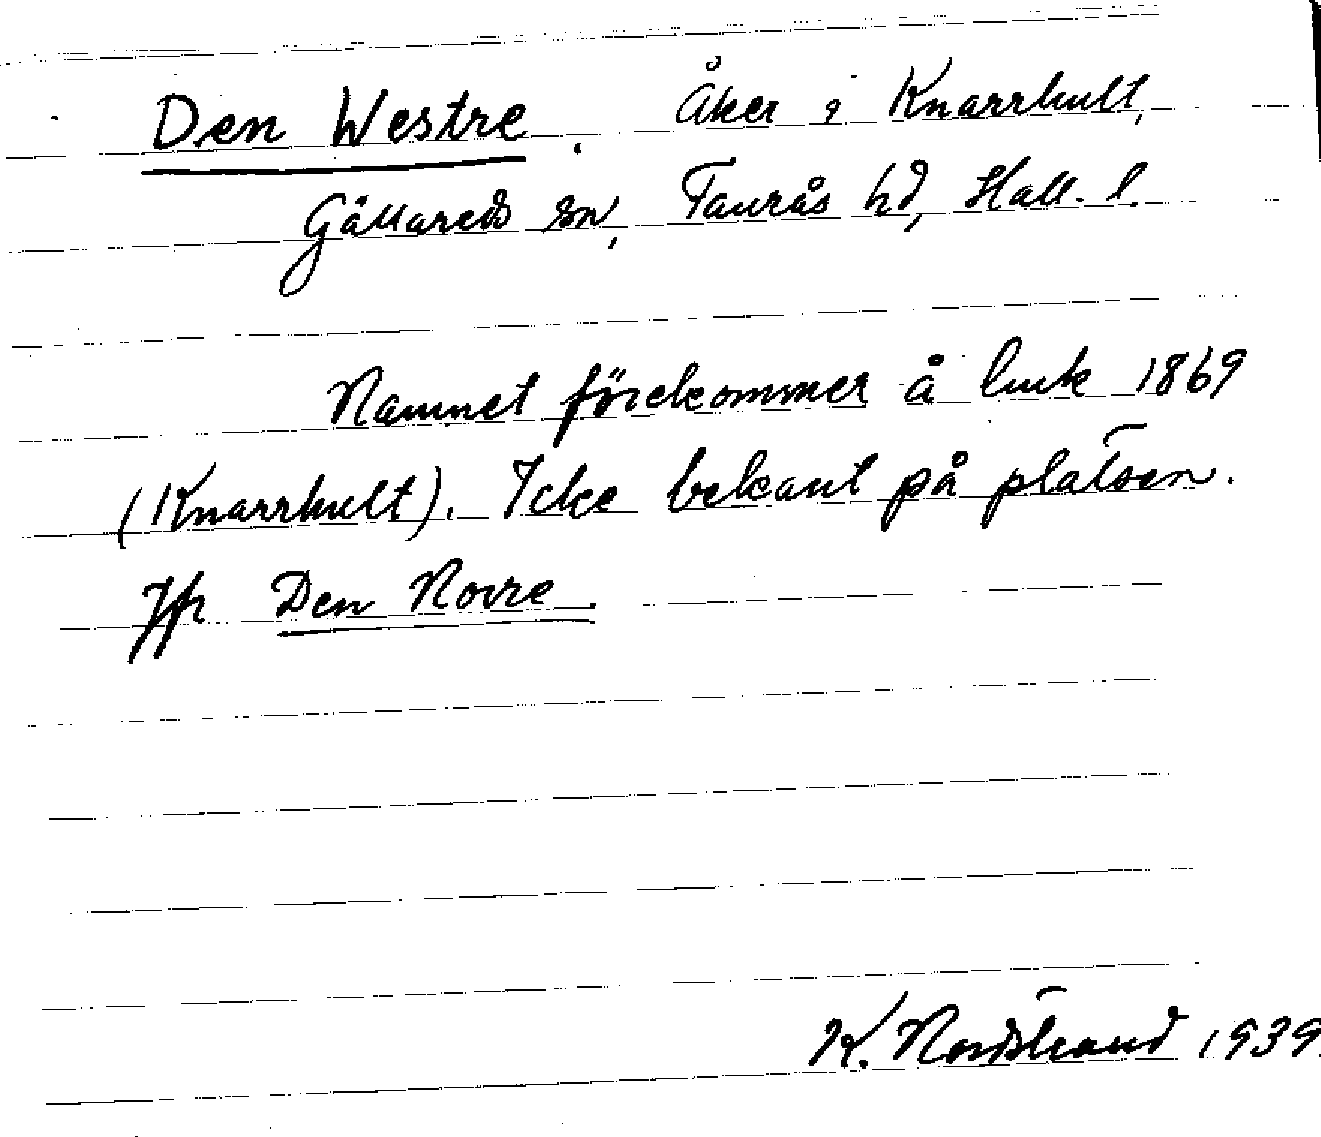 Den Westre. Åker i Knarrhult,
Gällareds sn, Faurås hd, Hall. l.
Namnet förekommer å lmk 1869
(Knarrhult). Icke bekant på platsen.
Jfr Den Norre.
K. Nordstrand 1939.